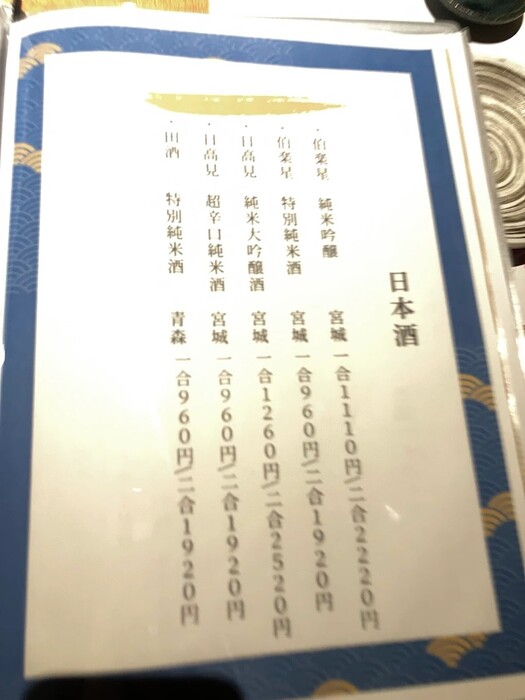 日本酒
・伯楽星 純米吟醸 宮城 一合1110円/二合2220円
・伯楽星 特別純米酒 宮城 一合960円/二合1920円
・日高見 純米大吟醸酒 宮城 一合1260円/二合2520円
・日高見 超辛口純米酒 宮城 一合960円/二合1920円
・田酒 特別純米酒 青森 一合960円/二合1920円